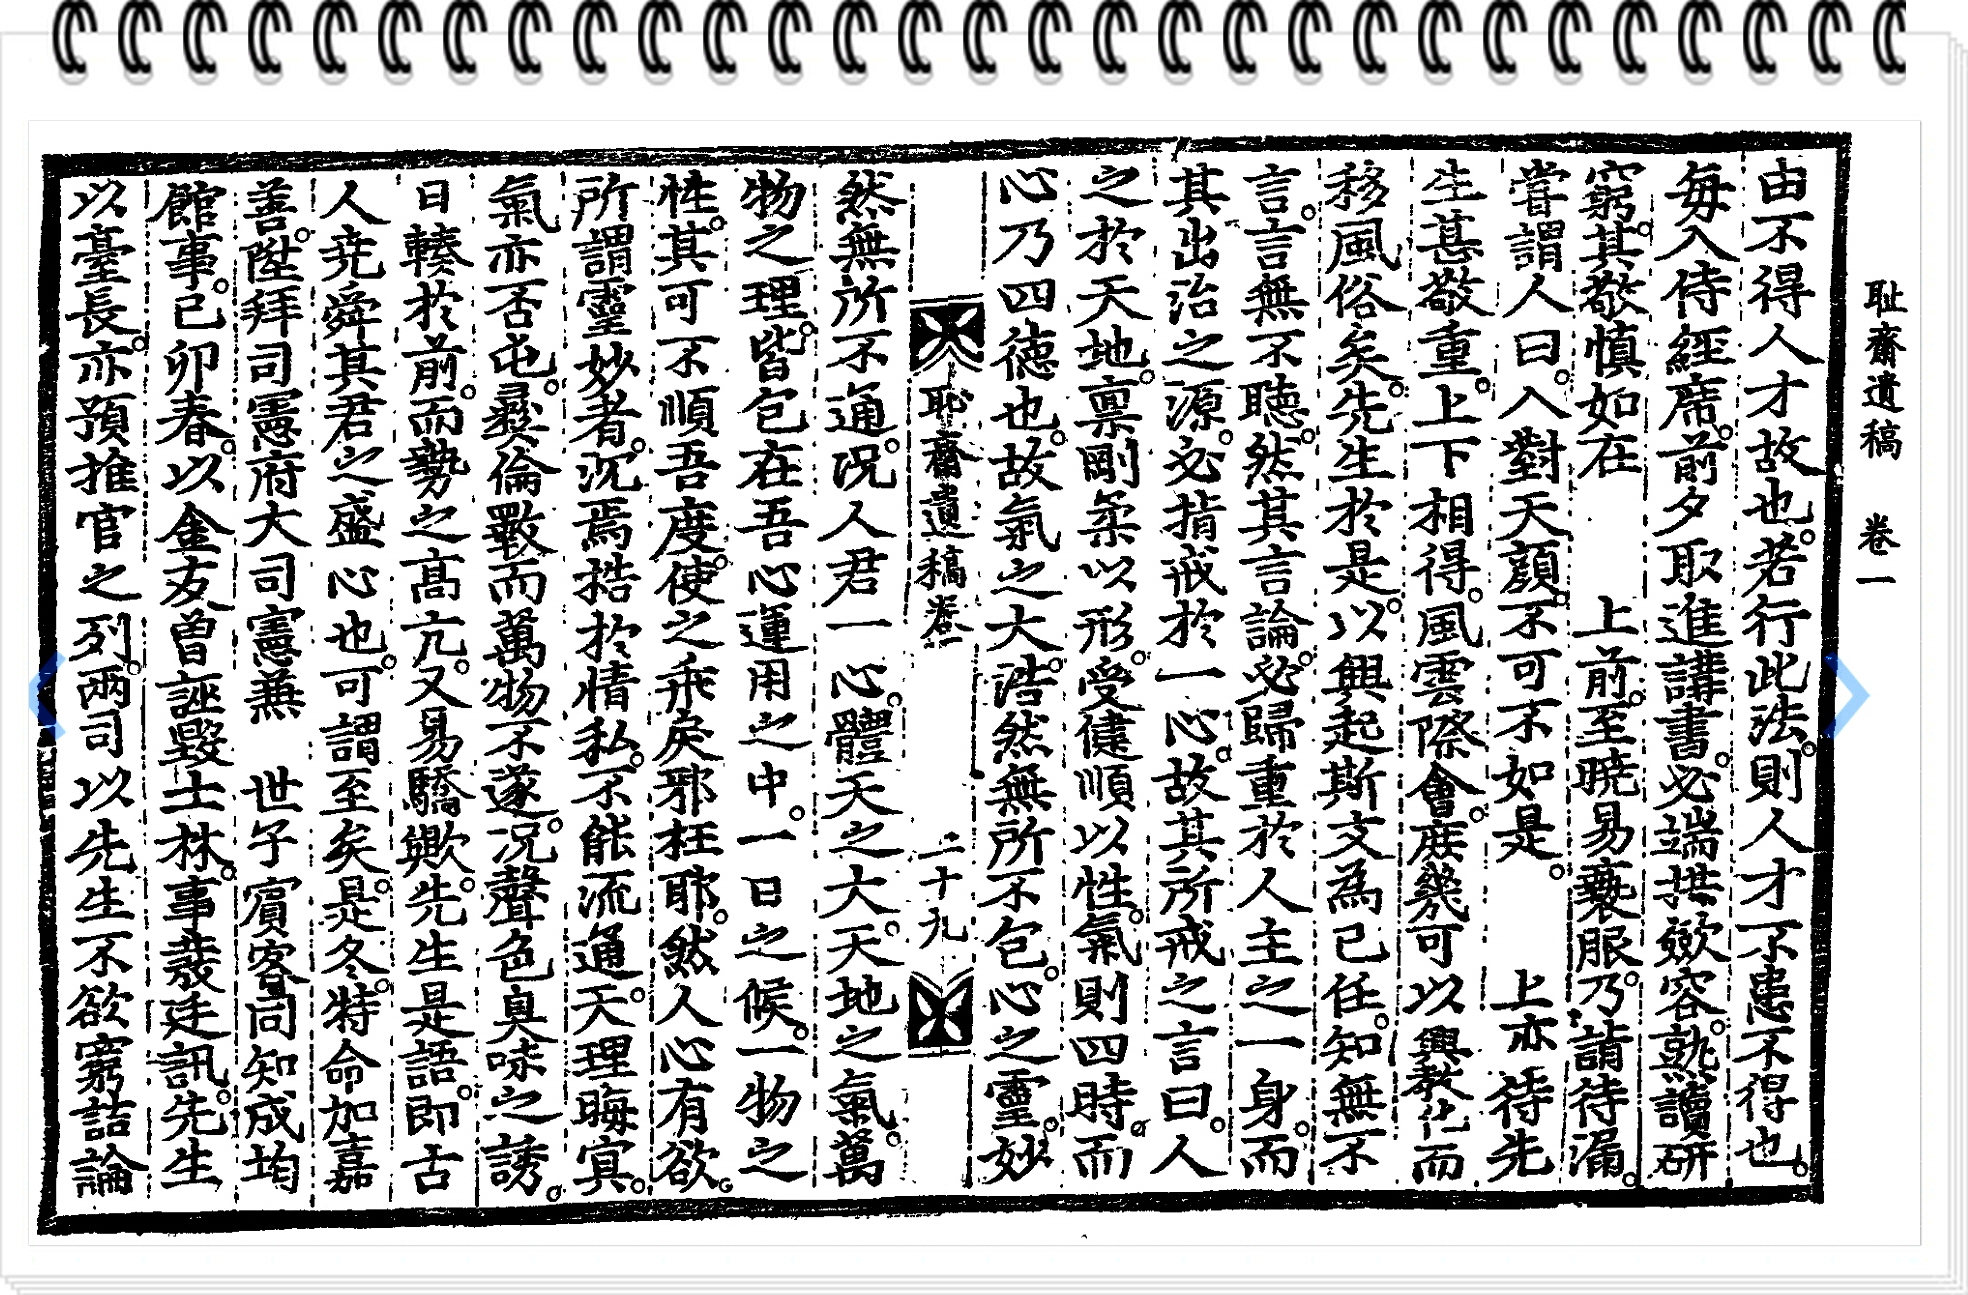 耻齋遺稿 卷一
由不得人才故也若行此法則人才不患不得也
每入侍經席前夕取進講書必端拱斂容熟讀研
窮其敬愼如在 上前至曉易褻服乃請待漏
嘗謂人曰入對天顔不可不如是 上亦待先
生甚敬重上下相得風雲際會庶幾可以興敎化而
移風俗矣先生於是以興起斯文為己任知無不
言言無不聽然其言論必歸重於人主之一身而
其出治之源必指戒於一心故其所戒之言曰人
之於天地稟剛柔以形受健順以性氣則四時而
心乃四德也故氣之大浩然無所不包心之靈妙
恥齋遺稿卷一 二十九
然無所不通况人君一心體天之大天地之氣萬
物之理皆包在吾心運用之中一日之候一物之
性其可不順吾度使之乖戾邪枉耶然人心有欲
所謂靈妙者沉焉梏於情私不能流通天理晦冥
氣亦否屯彛倫斁而萬物不遂况聲色臭味之誘
日輳於前而勢之高亢又易驕歟先生是語即古
人堯舜其君之盛心也可謂至矣是冬特命加嘉
善陞拜司憲府大司憲兼 世子賓客同知成均
館事己卯春以金友曾誣毀士林事蕆廷訊先生
以臺長亦預推官之列兩司以先生不欲窮詰論